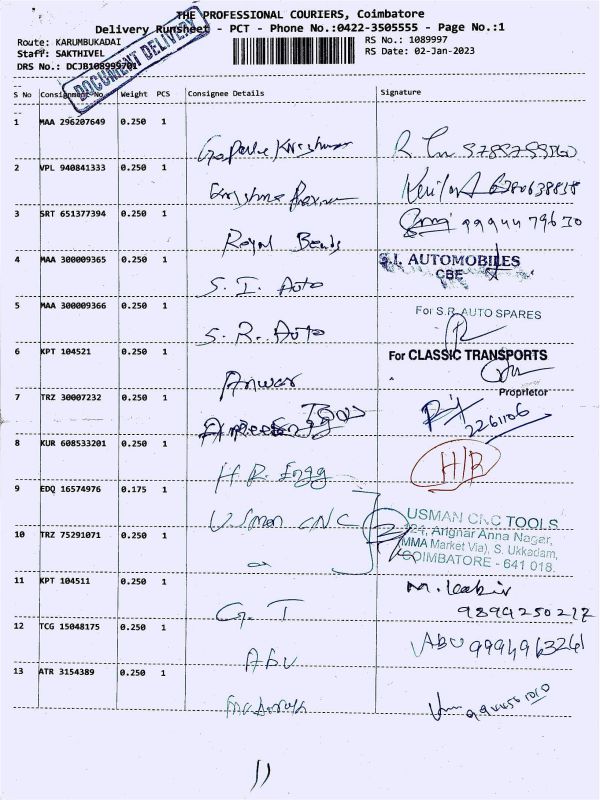 THE PROFESSIONAL COURIERS, Coimbatore
Delivery Runsheet - PCT - Phone No.:0422-3505555 - Page No.:1
Route: KARUMBUKADAI
Staff: SAKTHIVEL
DRS No.: DCJB108999701
RS No.: 1089997
RS Date: 02-Jan-2023
DOCUMENT DELIVERY
S No Consignment No. Weight PCS Consignee Details Signature
1 MAA 296207649 0.250 1
2 VPL 940841333 0.250 1
3 SRT 651377394 0.250 1
Royal Bends 9994479630
4 MAA 300009365 0.250 1
S. I. Auto
S.I. AUTOMOBILES
CBE
5 MAA 300009366 0.250 1
S. R. Auto
For S.R. AUTO SPARES
6 KPT 104521 0.250 1
Anwar
For CLASSIC TRANSPORTS
Proprietor
7 TRZ 30007232 0.250 1
Tools
2261106
8 KUR 608533201 0.250 1
H.R. Engg
H/B
9 EDQ 16574976 0.175 1
Usman CNC
USMAN CNC TOOLS
10 TRZ 75291071 0.250 1
Angnar Anna Nagar,
MMA Market Via), S. Ukkadam,
COIMBATORE - 641 018.
11 KPT 104511 0.250 1
G. T
9894250212
12 TCG 15048175 0.250 1
Abu
ABU 9994963261
13 ATR 3154389 0.250 1